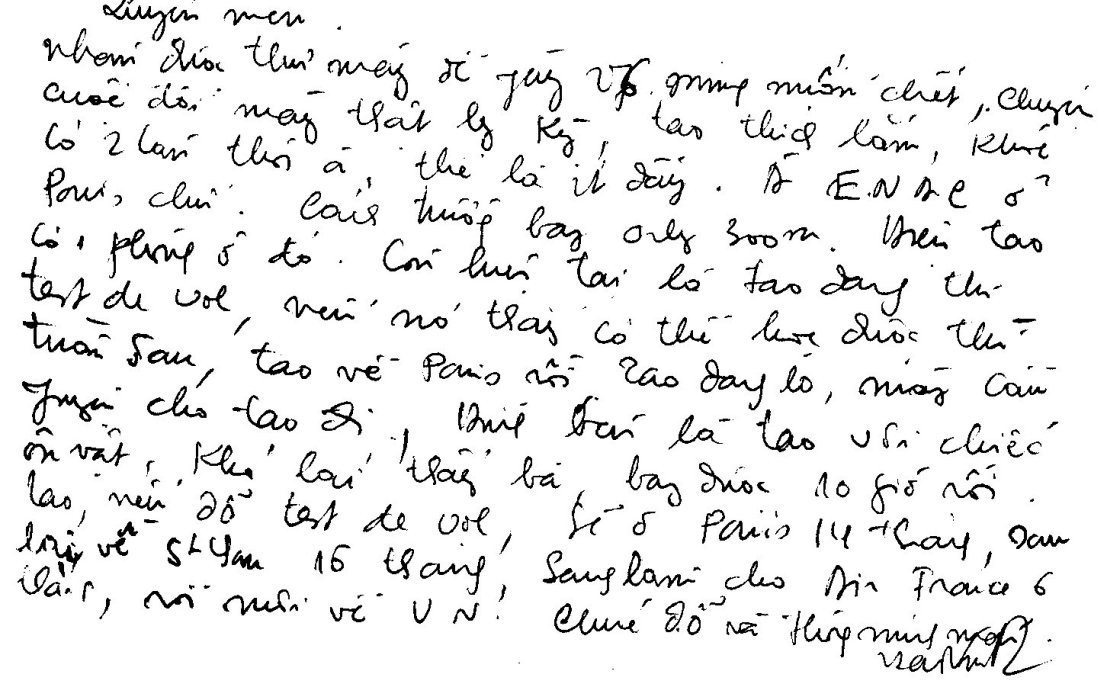 Luyến mến.
nhận được thư mày để mừng muốn chết, chuyện
cuộc đời mày thật ly kỳ, tao thích lắm, khoẻ
có 2 lần thôi à, thế là ít đấy. À E.N.A.C ở
Paris chứ. Cách trường bay Orly 300m. Hiện tao
có 1 phòng ở đó. Còn hiện tại là tao đang thi
test de vol, nếu nó thấy có thể học được thì
tuần sau, tao về Paris rồi. Tao đang lo, mày cầu
nguyện cho tao đi, là tao với chiếc
ôn vật, Khó lái thấy bà, bay được 10 giờ rồi.
Tao, nếu đỗ test de vol, sẽ ở Paris 14 tháng, sau
lại về St Yan 16 tháng, sang làm cho Air France 6
tháng, rồi mới về V N. Chúc đỗ và